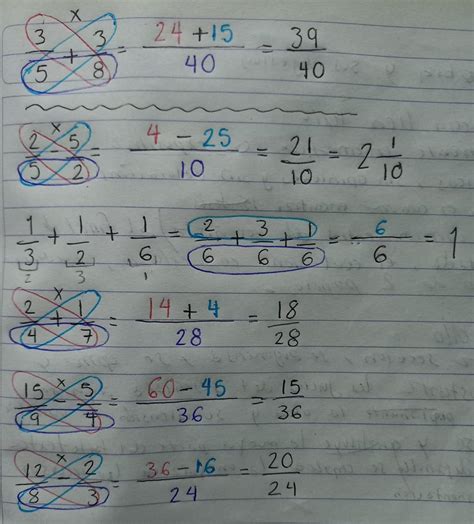 x
3/5 + 3/8 = 24 + 15/40 = 39/40
x
2/5 5/2 = 4 - 25/10 = 21/10 = 2 1/10
1/3 + 1/2 + 1/6 = 2/6 + 3/6 + 1/6 = 6/6 = 1
2 3 1
x
2/4 + 1/7 = 14 + 4/28 = 18/28
x
15/9 - 5/4 = 60 - 45/36 = 15/36
x
12/8 - 2/3 = 36 - 16/24 = 20/24